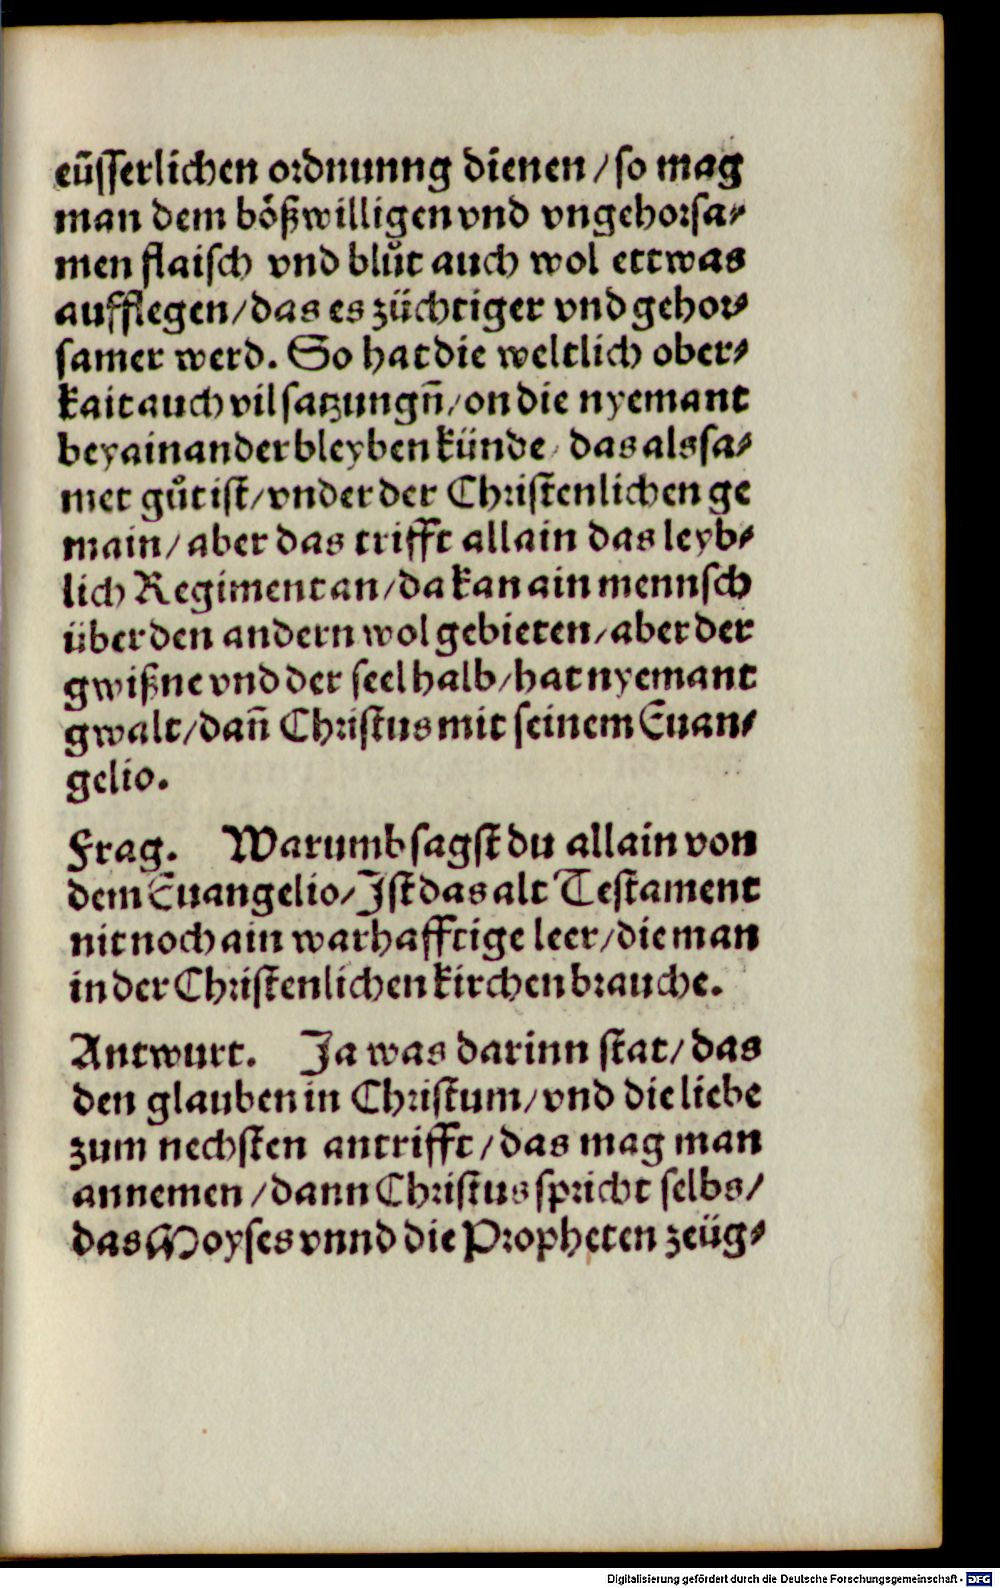 eüsserlichen ordnunng dienen / so mag
man dem bößwilligen vnd vngehorsa⸗
men flaisch vnd blůt auch wol ettwas
aufflegen / das es züchtiger vnd gehor⸗
samer werd. So hat die weltlich ober⸗
kait auch vil satzungñ / on die nyemant
bey ainander bleyben künde / das als sa⸗
met gůt ist / vnder der Christenlichen ge
main / aber das trifft allain das leyb⸗
lich Regiment an / da kan ain mennsch
über den andern wol gebieten / aber der
gwißne vnd der seel halb / hat nyemant
gwalt / dañ Christus mit seinem Euan⸗
gelio.
Frag. Warumb sagst du allain von
dem Euangelio / Ist das alt Testament
nit noch ain warhafftige leer / die man
in der Christenlichen kirchen brauche.
Antwurt. Ja was darinn stat / das
den glauben in Christum / vnd die liebe
zum nechsten antrifft / das mag man
annemen / dann Christus spricht selbs /
das Moyses vnnd die Propheten zeüg⸗
Digitalisierung gefördert durch die Deutsche Forschungsgemeinschaft - DFG